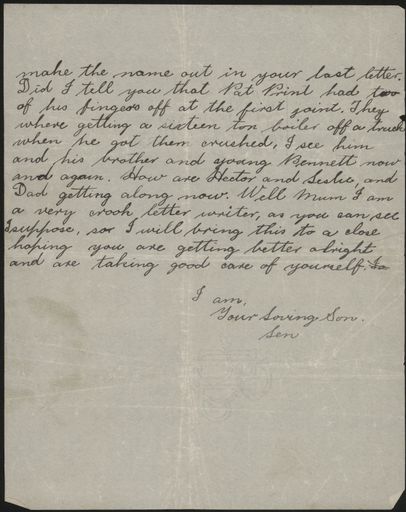 make the name out in your last letter.
Did I tell you that Pat Print had two
of his fingers off at the first joint. They
where getting a sixteen ton boiler off a truck
when he got them crushed, I see him
and his brother and young Bennett now
and again. How are Hector and Leslie, and
Dad getting along now. Well Mum I am
a very crook letter writer, as you can see
I suppose, so I will bring this to a close
hoping you are getting better alright
and are taking good care of yourself.
I am,
Your Loving Son.
Len